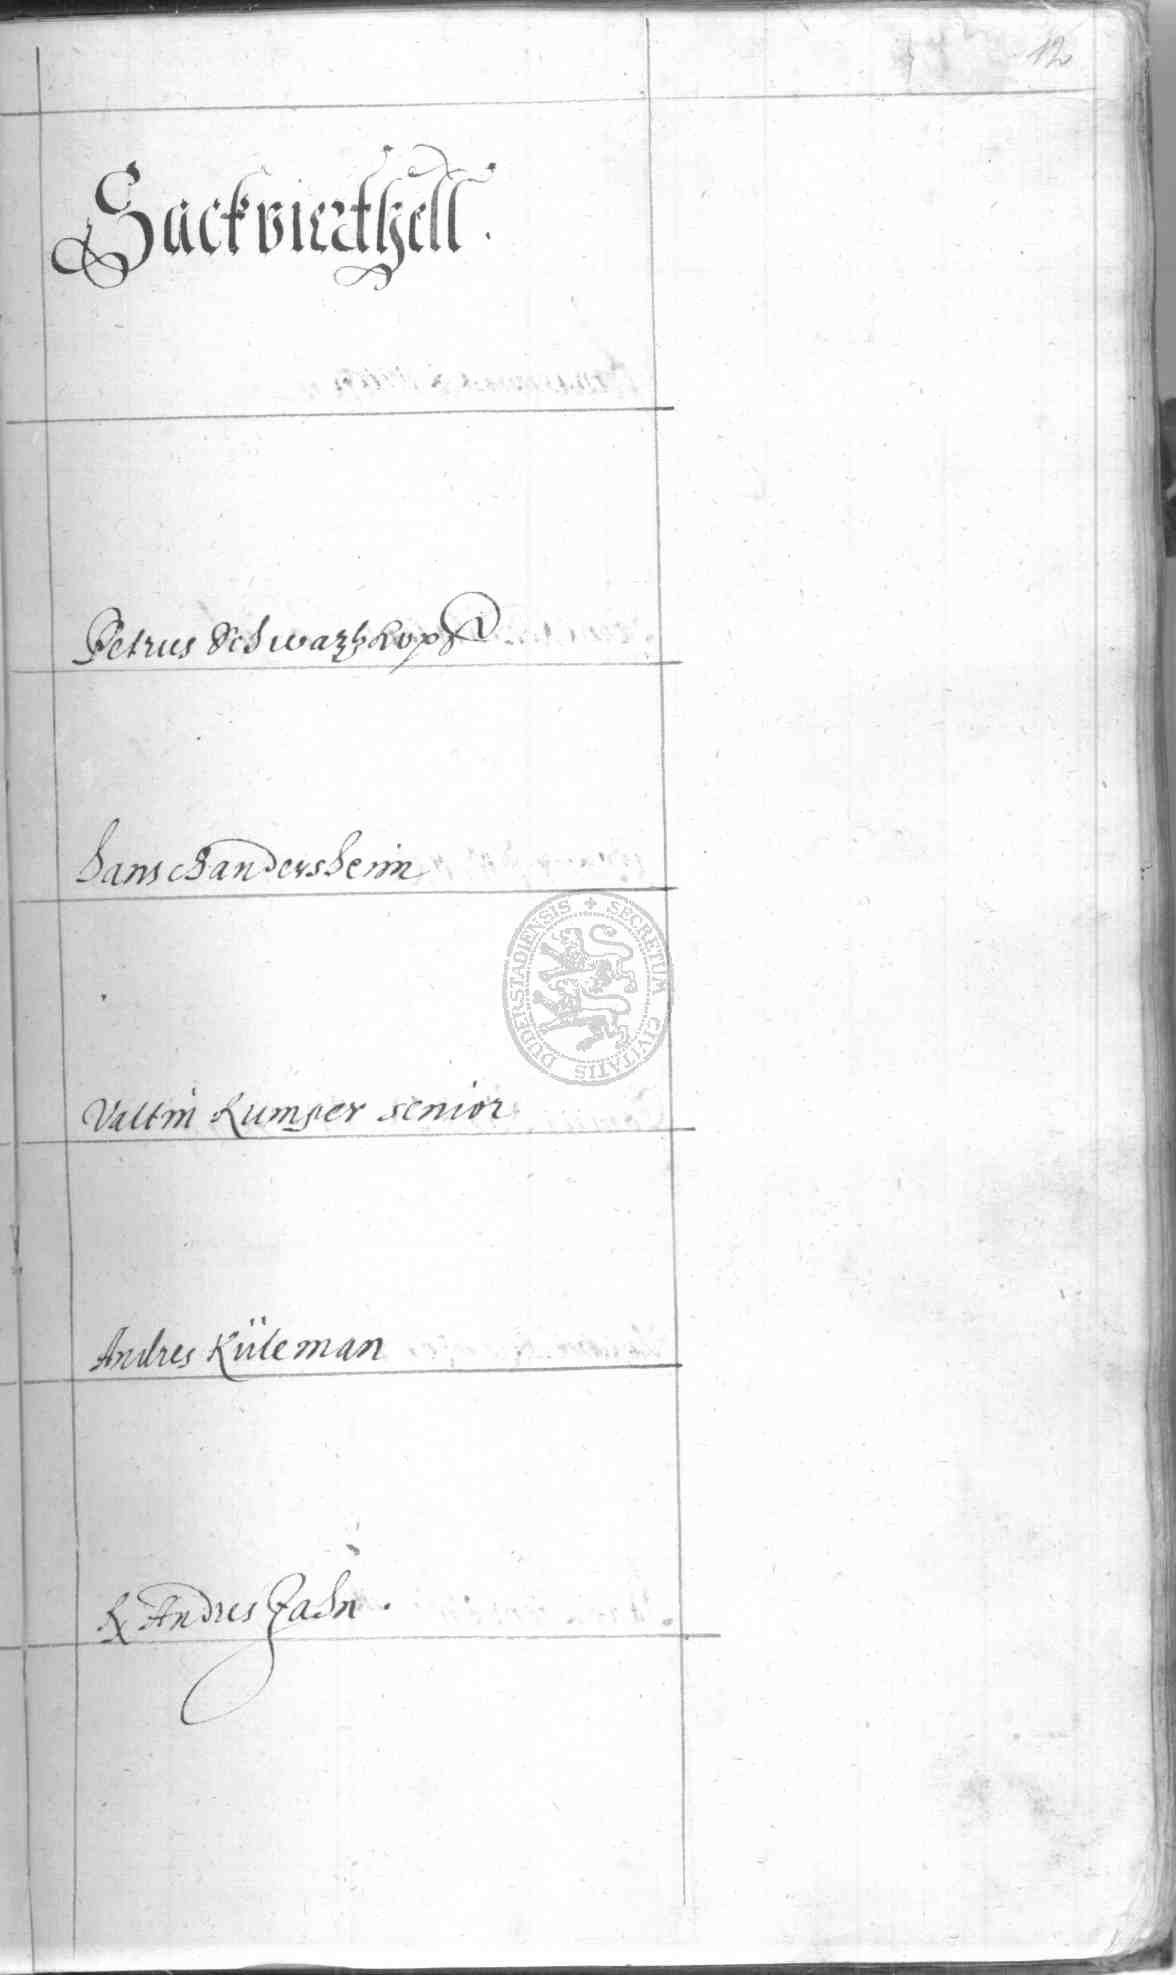 12
Sackvierthell.
Petrus Schwarzkopff
Hans Gandersheim
Valtin Kumper senior
Andres Küleman
Andres Zahn.
SECRETUM CIVITATIS DUDERSTADIENSIS